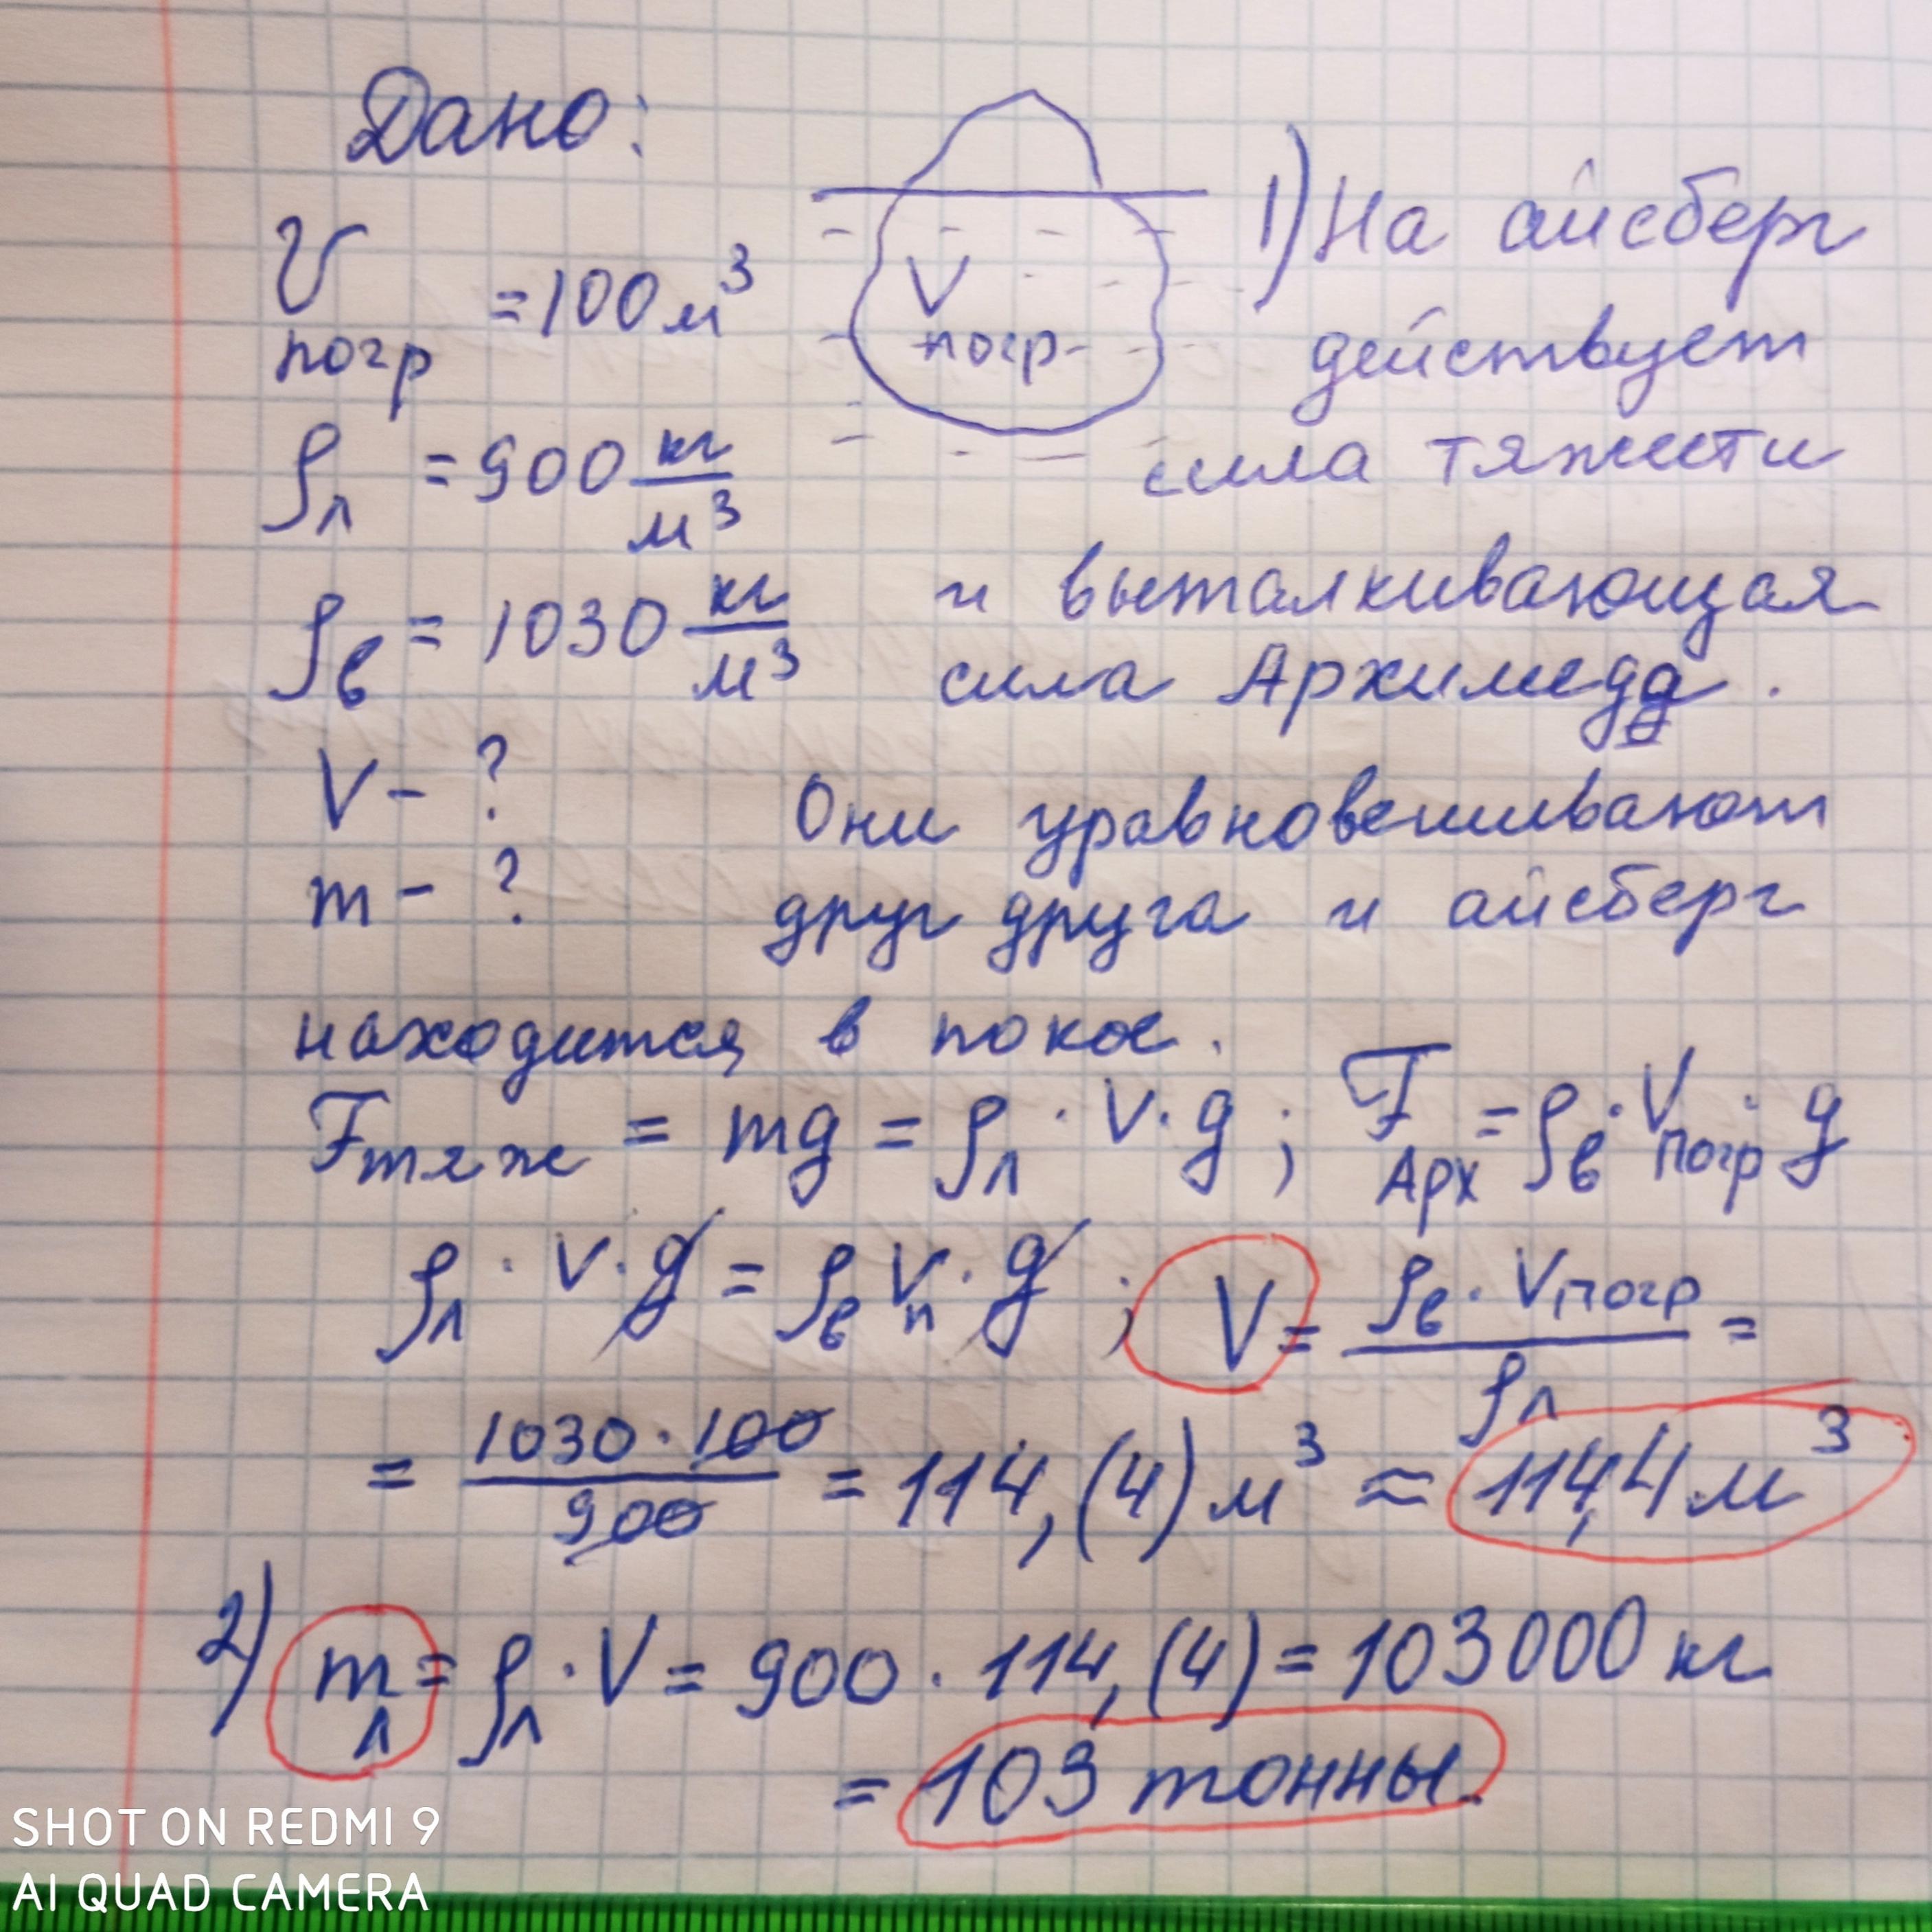 Дано:
V погр = 100 м³
ρл = 900 кг/м³
ρв = 1030 кг/м³
V - ?
m - ?
V погр
1) На айсберг
действует
сила тяжести
и выталкивающая
сила Архимеда.
Они уравновешивают
друг друга и айсберг
находится в покое.
Fтяж = mg = ρл · V · g ; FАрх = ρв · Vпогр · g
ρл · V · g = ρв Vп · g ; V = ρв · Vпогр / ρл =
= 1030 · 100 / 900 = 114,(4) м³ ≈ 114,4 м³
2) mл = ρл · V = 900 · 114,(4) = 103000 кг
= 103 тонны.
SHOT ON REDMI 9
AI QUAD CAMERA